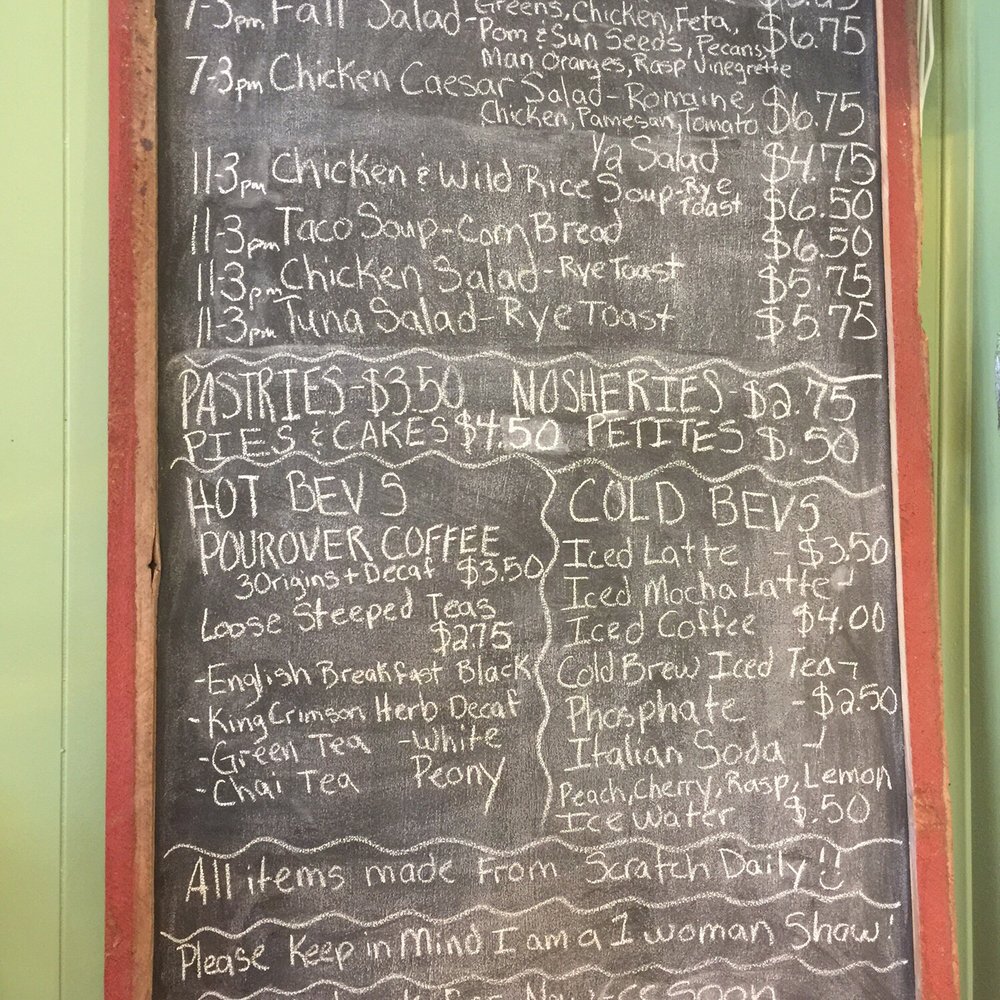 7-3pm Fall Salad - Greens, Chicken, Feta,
Pom & Sun Seeds, Pecans, $6.75
Man Oranges, Rasp Vinegrette
7-3pm Chicken Caesar Salad - Romaine,
Chicken, Pamesan, Tomato $6.75
1/2 Salad $4.75
11-3pm Chicken & Wild Rice Soup - Rye Toast $6.50
11-3pm Taco Soup - Corn Bread $6.50
11-3pm Chicken Salad - Rye Toast $5.75
11-3pm Tuna Salad - Rye Toast $5.75
PASTRIES - $3.50 NOSHERIES - $2.75
PIES & CAKES $4.50 PETITES $.50
HOT BEVS
POUROVER COFFEE
3 Origins + Decaf $3.50
Loose Steeped Teas
$2.75
- English Breakfast Black
- King Crimson Herb Decaf
- Green Tea - White
- Chai Tea Peony
COLD BEVS
Iced Latte - $3.50
Iced Mocha Latte
Iced Coffee $4.00
Cold Brew Iced Tea
Phosphate - $2.50
Italian Soda
Peach, Cherry, Rasp, Lemon
Ice Water $.50
All items made From Scratch Daily
Please Keep in Mind I am a 1 woman Show!
Soon